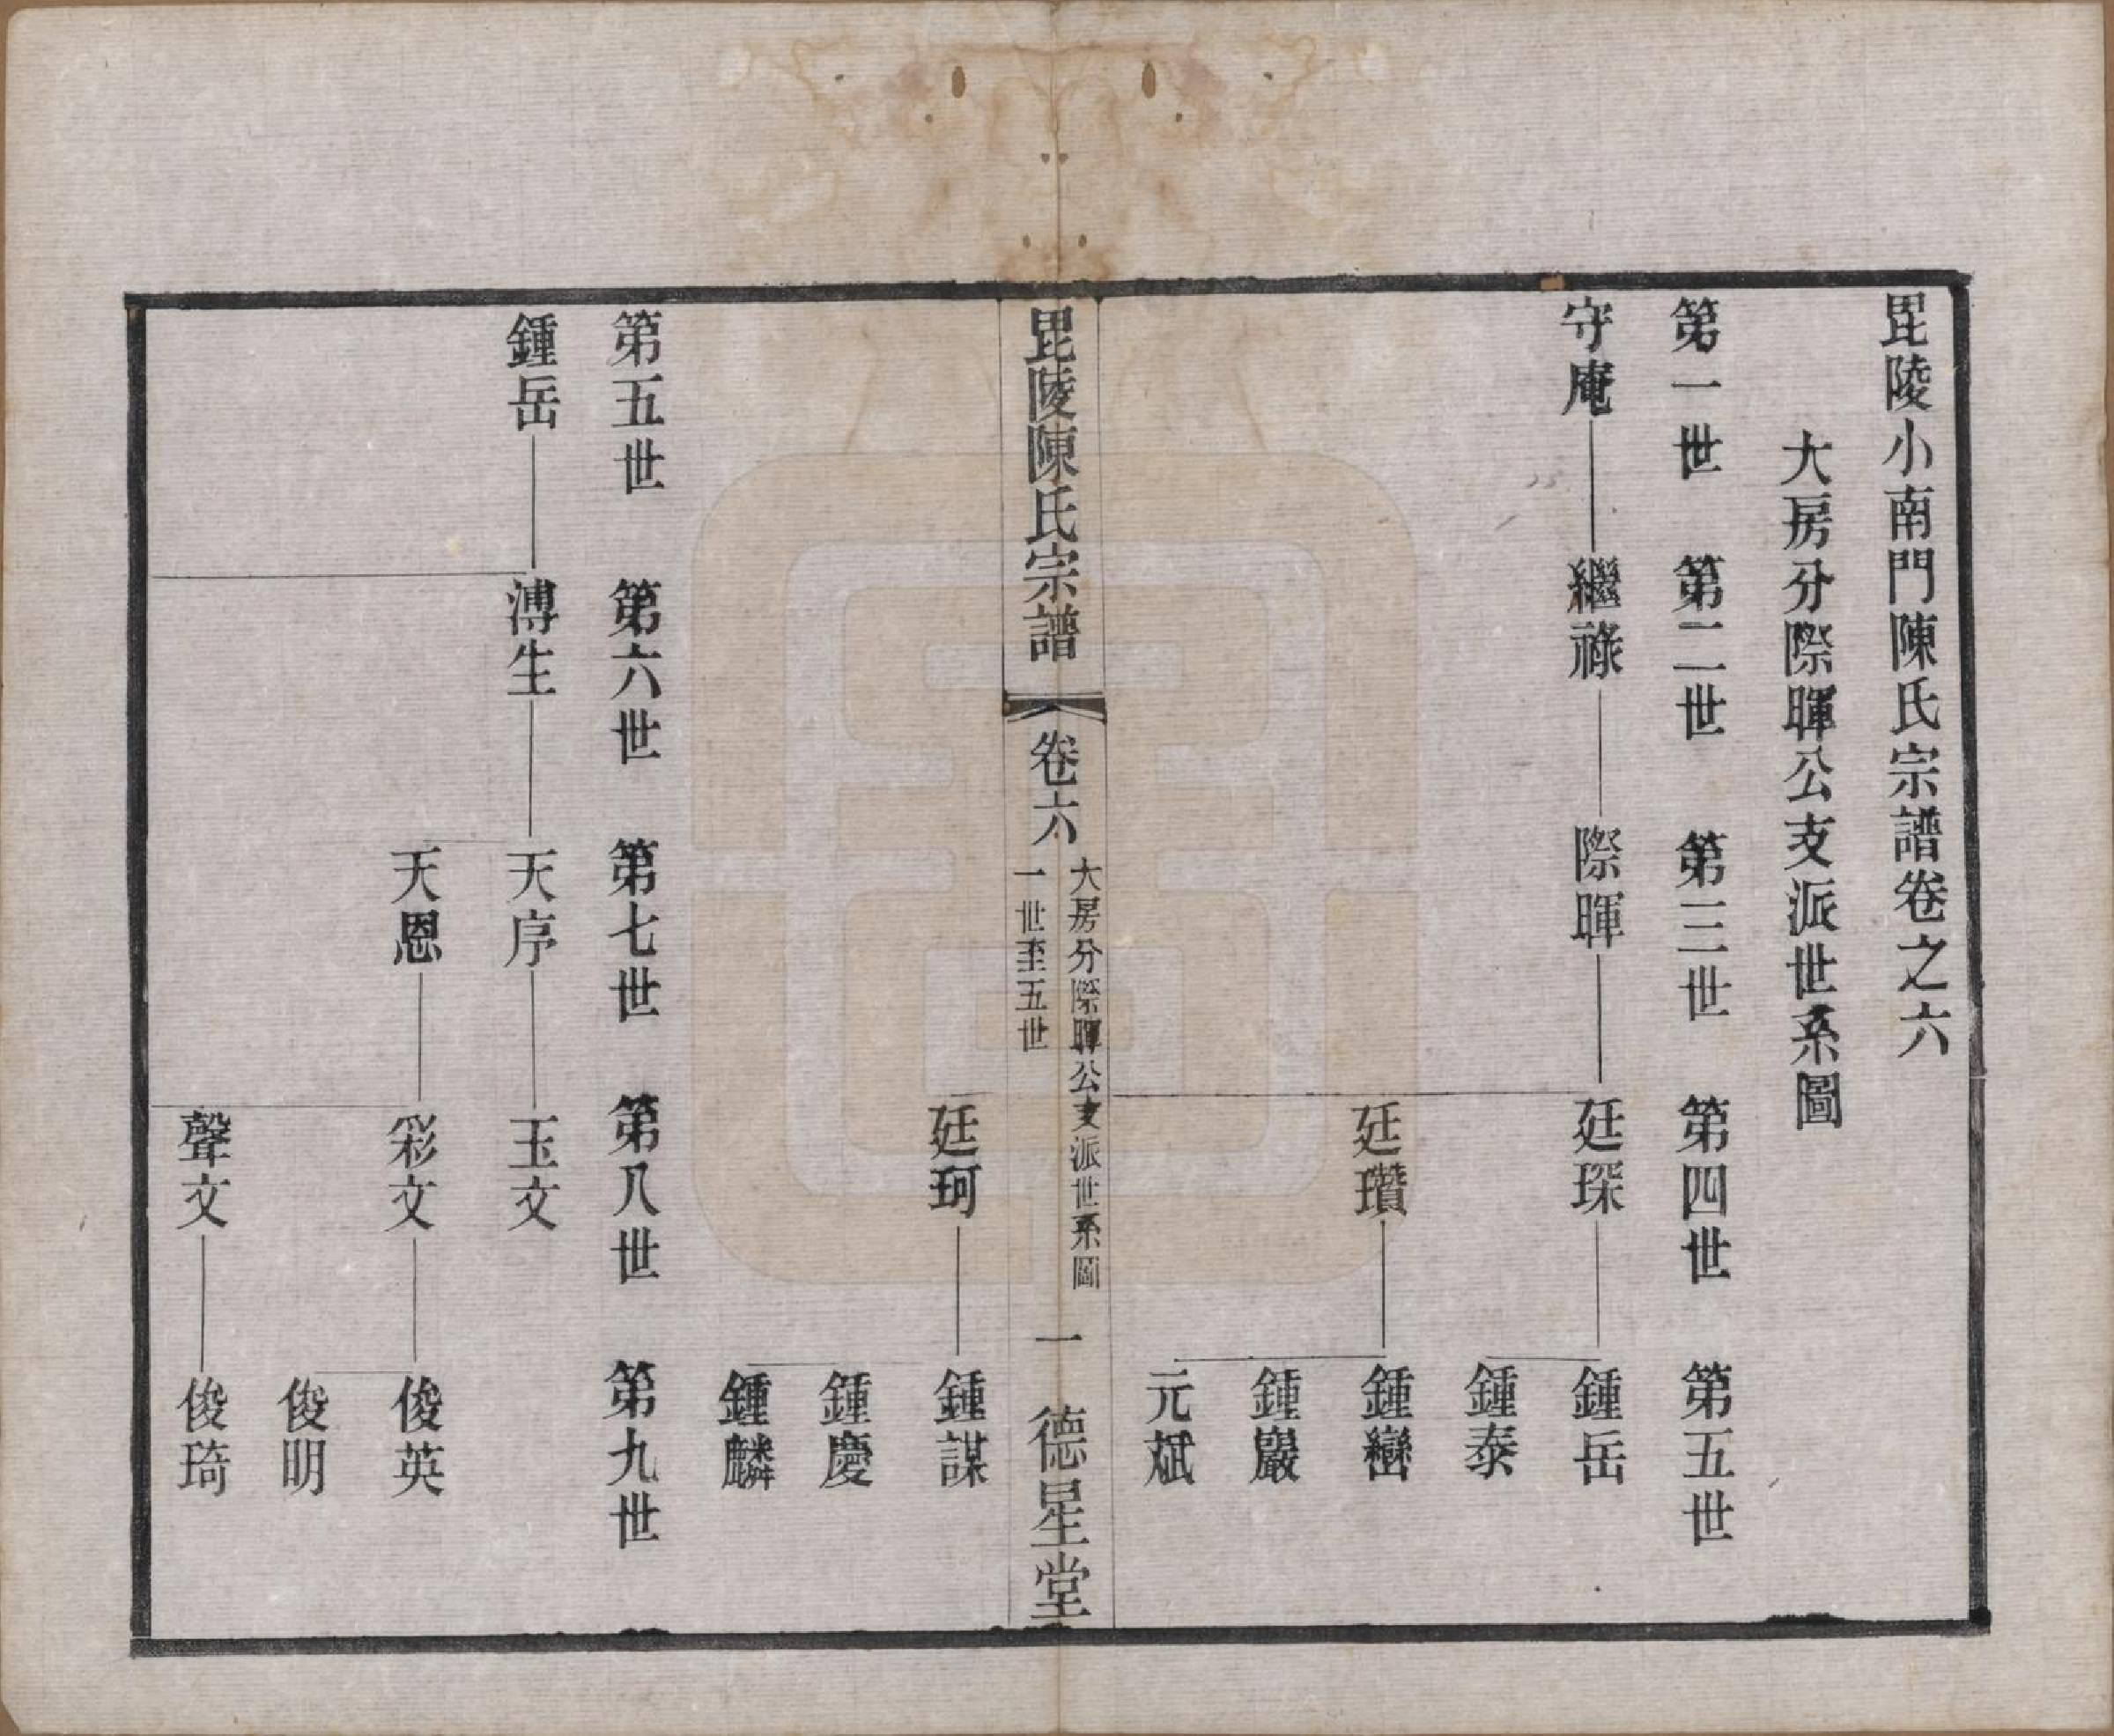 毘陵小南門陳氏宗譜卷之六
大房分際暉公支派世系圖
第一世 第二世 第三世 第四世 第五世
守庵 繼祿 際暉 廷琛 鍾岳
鍾泰
廷瓚 鍾巒
鍾巖
元斌
毘陵陳氏宗譜 卷六 大房分際暉公支派世系圖
一世至五世
一 德星堂
廷珂 鍾謀
鍾慶
鍾麟
第五世 第六世 第七世 第八世 第九世
鍾岳 溥生 天序 玉文
天恩 彩文 俊英
俊明
聲文 俊琦